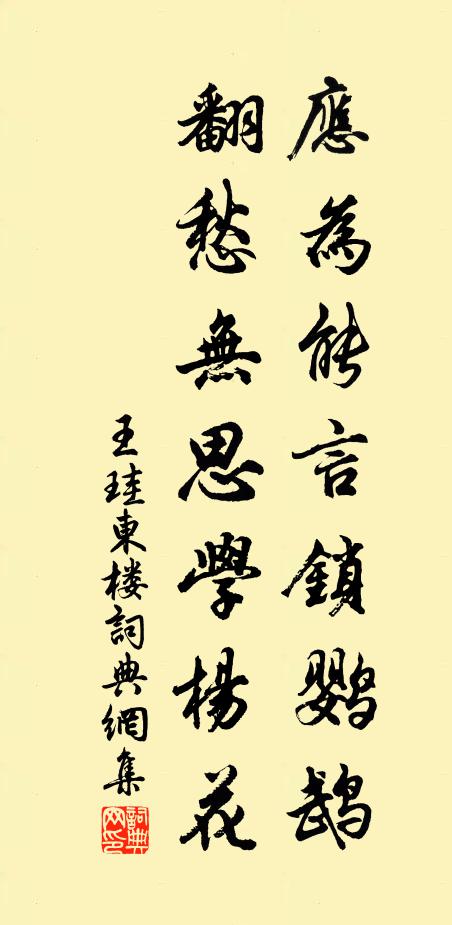 應為能言鎖鹦鵡
翻愁無思學楊花
王珪東楼詞典網集
詞典網印